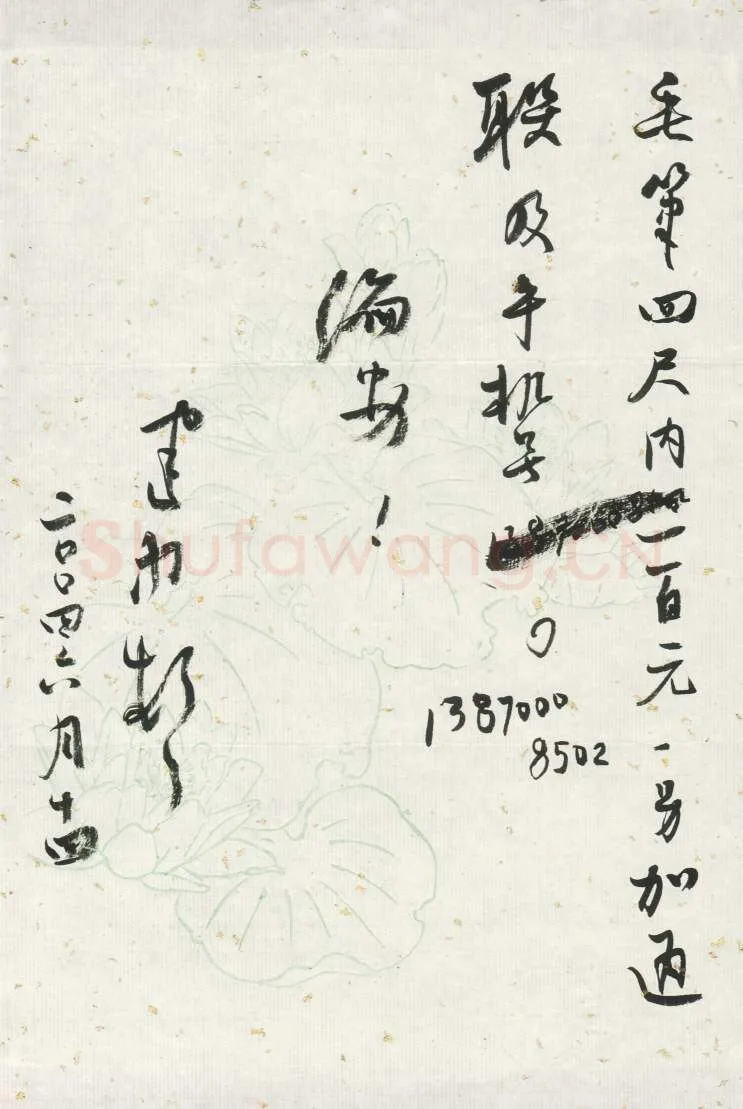 毛笔四尺内一百元一号加通
联及手机号
13870008502
安！
建 顿
二〇〇四六月十四
Shufawang.CN